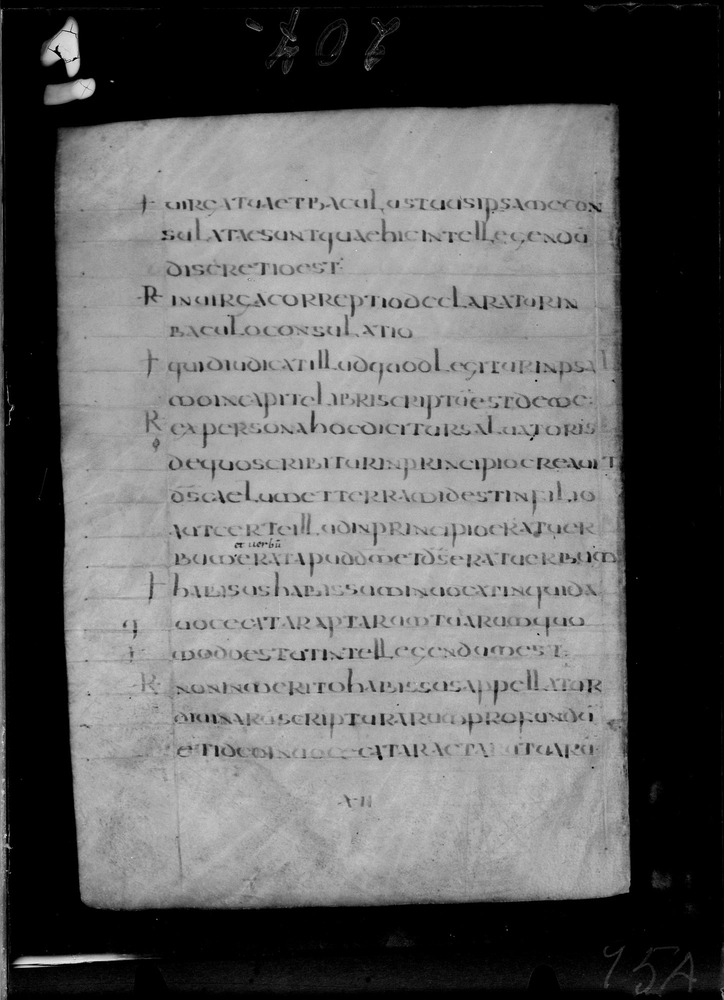 207.
uirgatuaetbaculustuusipsamecon
sulataesuntquaehicintellegendū
discretioest
R inuirgacorreptiodeclaraturin
baculoconsulatio
quidiudicatilludquodlegiturinpsal
moincapitelibriscriptūestdeme:
R expersonahocdicitursaluatoris
dequoscribiturinprincipiocreauit
d̄scaelumetterramidestinfilio
autcerteilludinprincipioeratuer
et uerbū
bumerataputdm̄etd̄seratuerbum
habisushabissuminuocatinquida
q uocecataraptarumtuarumquo
modoestutintellegendumest
R noninmeritohabissusappellatur
diuinaruscripturarumprofundū
etideoinuocecataractarūtuarū
15A